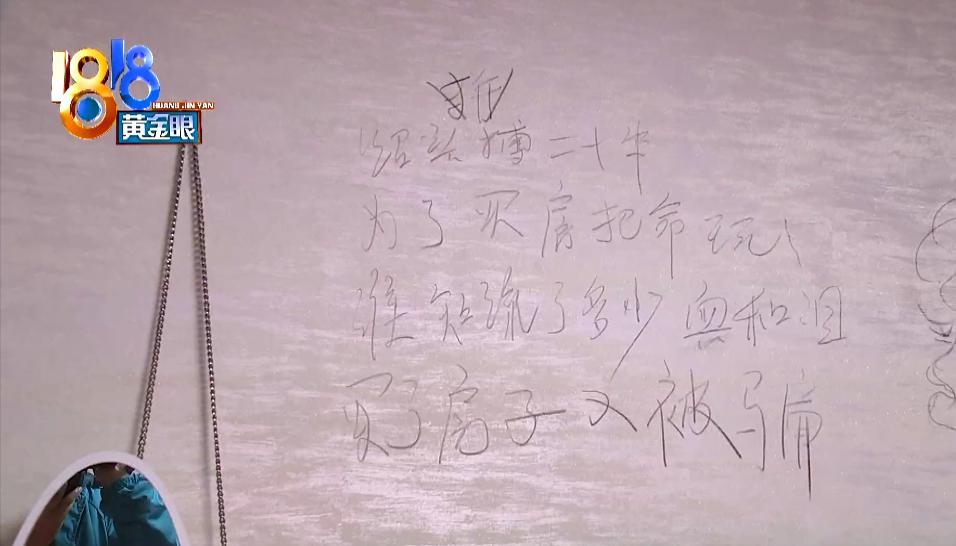 1818
HUANG JIN YAN
黄金眼
绍兴搏二十年
为了买房把命玩
谁知流了多少和泪
买了房子又被骗